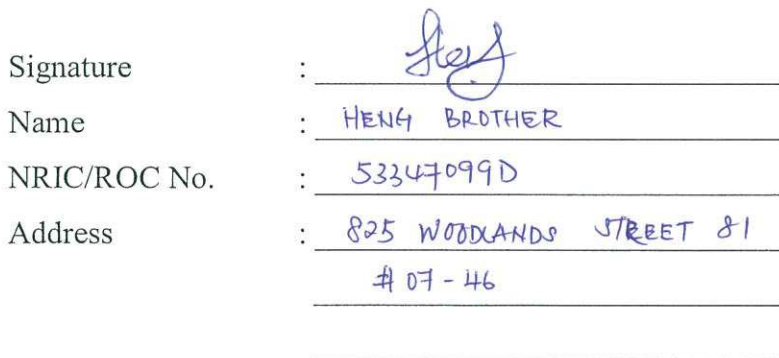 Signature :
Name : HENG BROTHER
NRIC/ROC No. : 53347099D
Address : 825 WOODLANDS STREET 81
# 07-46